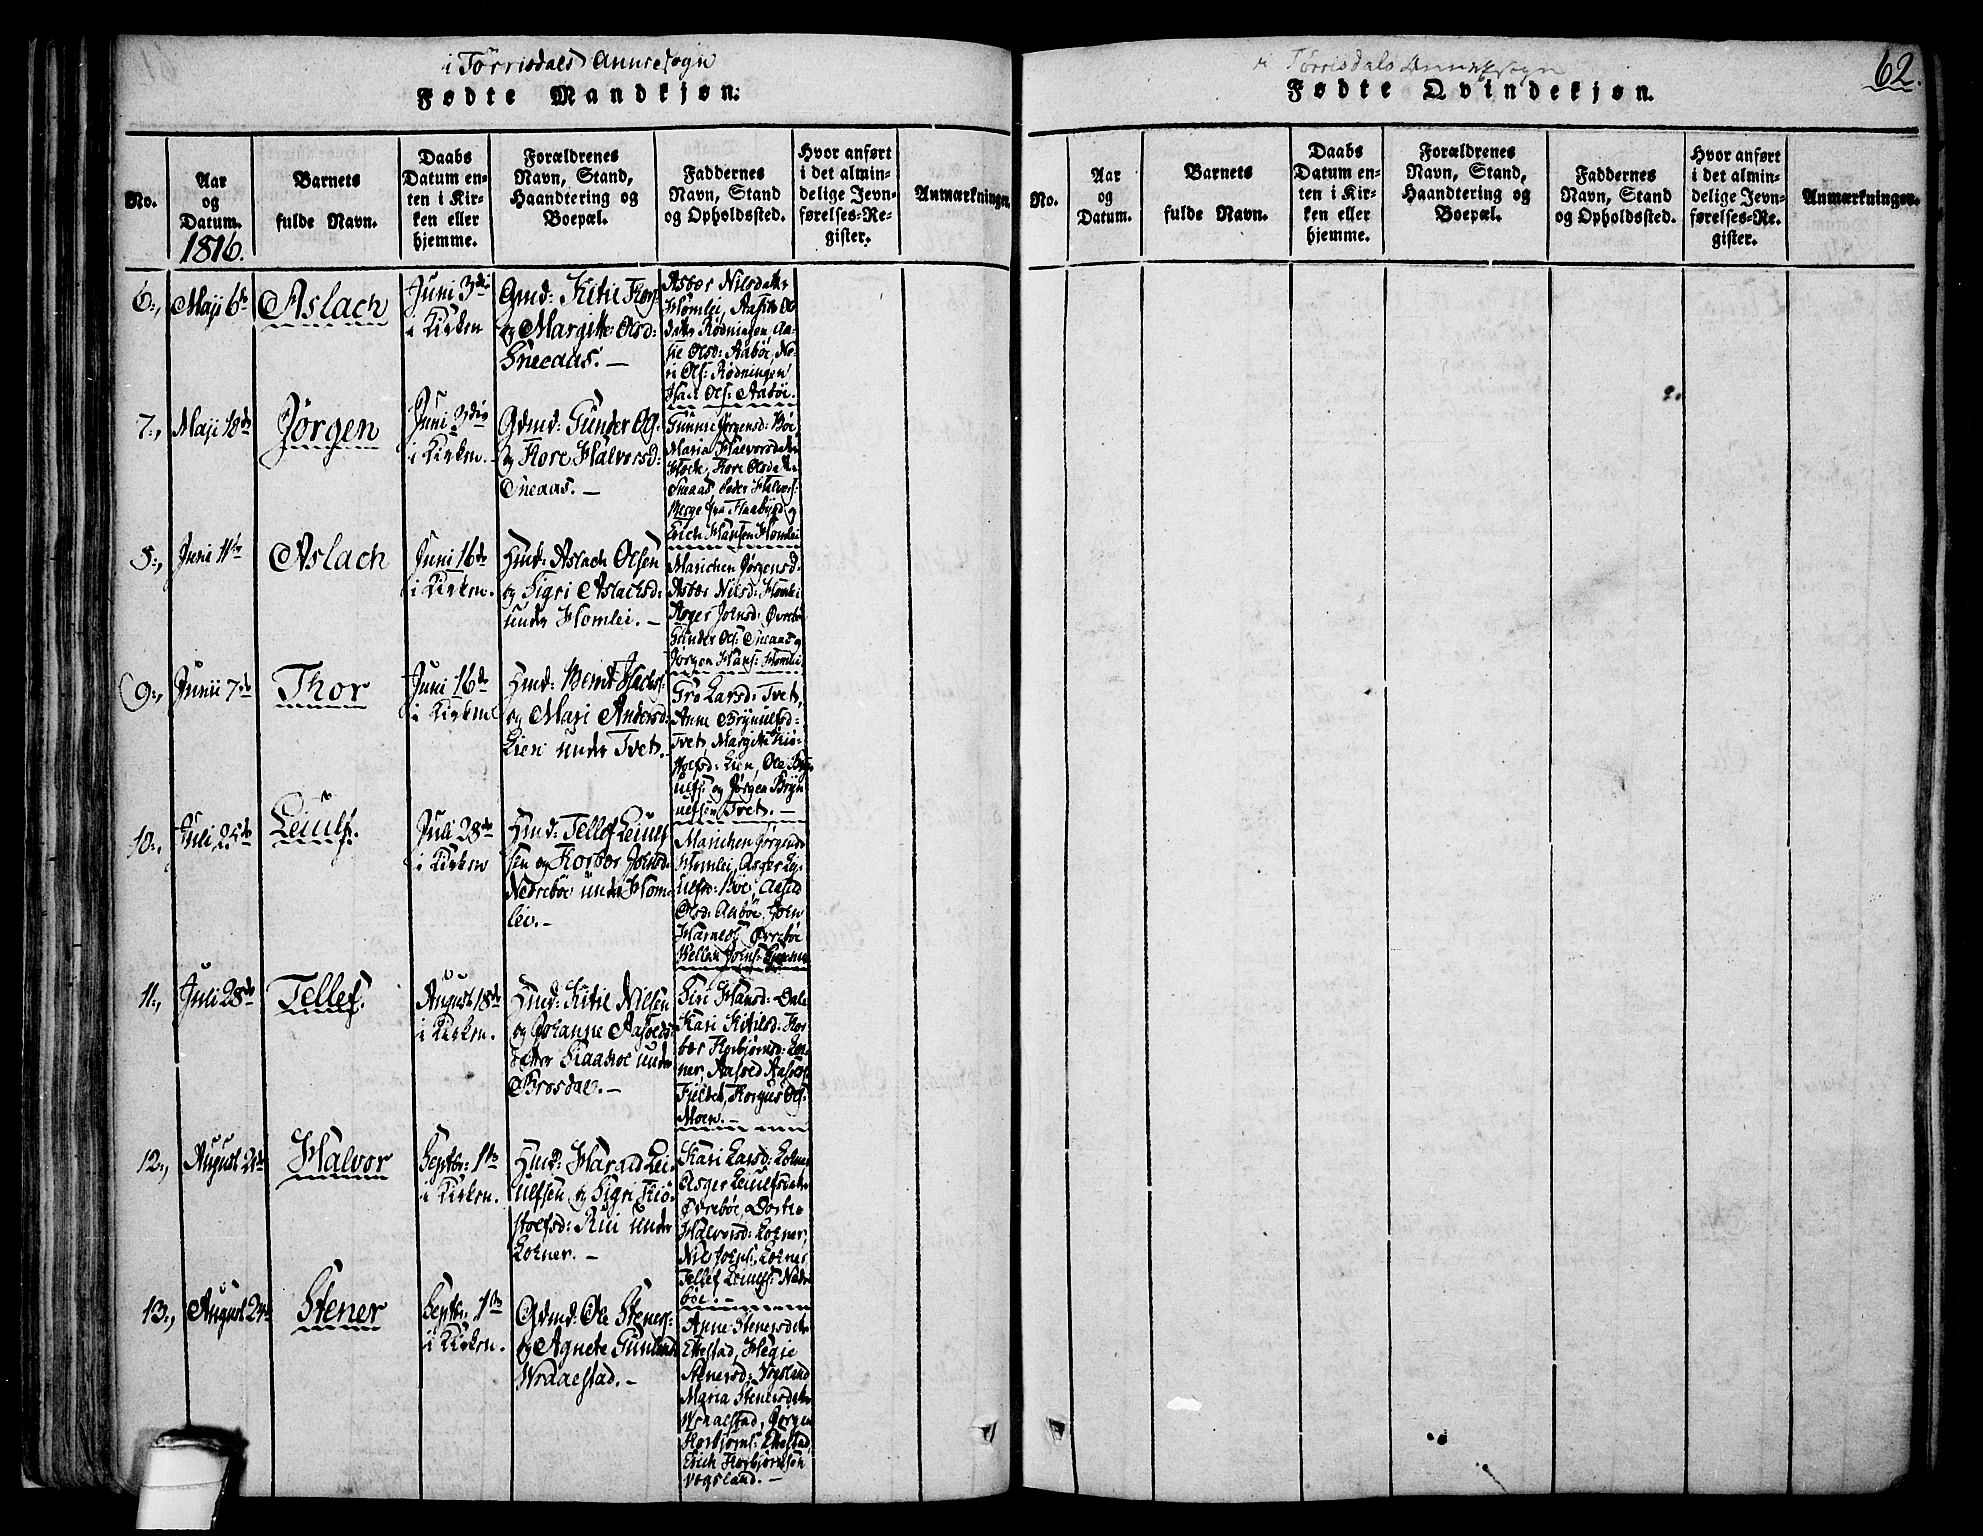 i Törrisdals Annexsogn
Fødte Mandkjøn.
No.
Aar
og
Datum.
1816.
Barnets
fulde Navn.
Daabs
Datum en-
ten i Kir-
ken eller
hjemme.
Forældrenes
Navn, Stand,
Haandtering og
Boepæl.
Faddernes
Navn, Stand
og Opholdssted.
Hvor anført
i det almin-
delige Jevn-
førelses-Re-
gister.
Anmærkninger.
6.,
Maji 6te
Aslach
Juni 3die
i Kirken
Gmd: Kitil
og Margitte Olsd:
Sneaas. —
Asbør Nilsdatter
Homlei,
datter Rødningen Aa-
sie Olsd: Aabøe,
Ols: Rødningen
Ols: Aabøe.
7.,
Maji 18de
Jørgen
Juni 3die
i Kirken.
Gdmd: Gunder Ols:
og Tore Halvorsd:
Sneaas. —
Gunnie Jørgensd: Bøe
Maria Halvorsdatter
Tore Olsdatter
Sneaas Peder Halvors:
Berge fra Flaabygd og
Erich Hansen Homlei
8.,
Juni 11te
Aslach
Juni 16de
i Kirken.
Hmd: Aslach Olsen
og Sigri Aslachsd:
under Homlei. —
Marichen Jørgensd:
Asbør Nilsd: Homlei
Asger Johnsd: Øvrebøe
Gunder Ols: Sneaas og
Jørgen Hans: Homlei
9.,
Junii 7de
Thor
Juni 16de
i Kirken
Hmd: Bernt
og Mari Andersd:
Lien under Tvet. —
Gro Larsd: Tvet,
Anne Brynulfsd:
Tvet, Margit Kiø-
stolfsd: Lien, Ole Bryn-
ulfs: og Jørgen Bryn-
ulfsen Tvet. —
10.,
Juli 25de
Leiulf.
Juli 28de
i Kirken
Hmd: Tellef Leiulf-
sen og Torbør Johnsd:
Nedrebøe under Hom-
lei. —
Marichen Jørgensd:
Homlei, Asger Lei-
ulfsd: Bøe, Aasild
Olsd: Aabøe, John
Øvrebøe
11.,
Juli 28de
Tellef.
August 18de
i Kirken.
Hmd: Kitil Nilsen
og Johanne Aasolds-
datter under
Brosdal. —
Siri Hansd: Dale
Kari Kitilsd: Tor-
bør Torbjørnsd: Lot-
ner, Aasold Aasolds:
Fjeldet, Torgus Ols:
Moen. —
12.,
August 21de
Halvor
Septbr: 1te
i Kirken.
Hmd: Harald Lei-
ulfsen og Sigri Kiø-
stolfsd: Rui under
Lotner. —
Kari Larsd: Lotner
Asger Leiulfsdatter
Øvrebøe, Dortie
Halvorsd: Lotner,
Nils Johns: Lotner
Tellef Leiulfs: Nedre-
bøe. —
13.,
August 24de
Stener
Septbr. 1te
i Kirken.
Gdmd: Ole Steners:
og Agnete
Wraalstad. —
Anne Stenersdatter
Ekestad, Hægie
Stenersd: Vogsland
Maria Stenersdatter
Wraalstad, Jørgen
Torbjørns: Ekestad,
Erich Torbjørnsen
Vogsland. —
i Törrisdals Annexsogn
62.
Fødte Qvindekjøn.
No.
Aar
og
Datum.
Barnets
fulde Navn.
Daabs
Datum en-
ten i Kir-
ken eller
hjemme.
Forældrenes
Navn, Stand,
Haandtering og
Boepæl.
Faddernes
Navn, Stand
og Opholdssted.
Hvor anført
i det almin-
delige Jevn-
førelses-Re-
gister.
Anmærkninger.